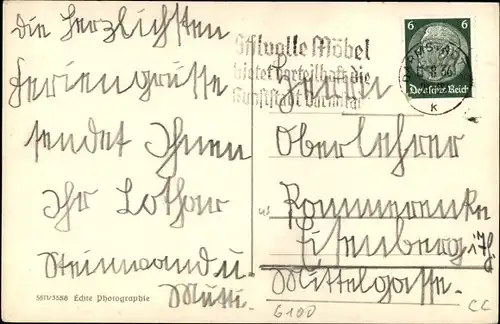 Die Herzlichsten
Feriengrüsse
sendet Ihnen
Ihr Lothar
Steinwand u.
Mutti.
5511/3556 Echte Photographie
Stilvolle Möbel
bietet vorteilhaft die
Kunststadt Darmstadt
6 6
Deutsches Reich
k
Herrn
Oberlehrer
Eisenberg i/Th.
Mittelgasse.
6100
CC